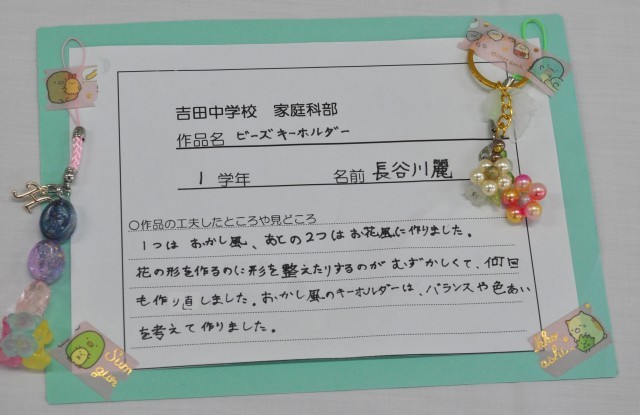 吉田中学校 家庭科部
作品名 ビーズキーホルダー
1 学年 名前 長谷川麗
○作品の工夫したところや見どころ
1つは おかし風、あとの2つは お花風に作りました。
花の形を作るのに形を整えたりするのがむずかしくて、何回
も作り直しました。おかし風のキーホルダーは、バランスや色あい
を考えて作りました。
Sumi
gur